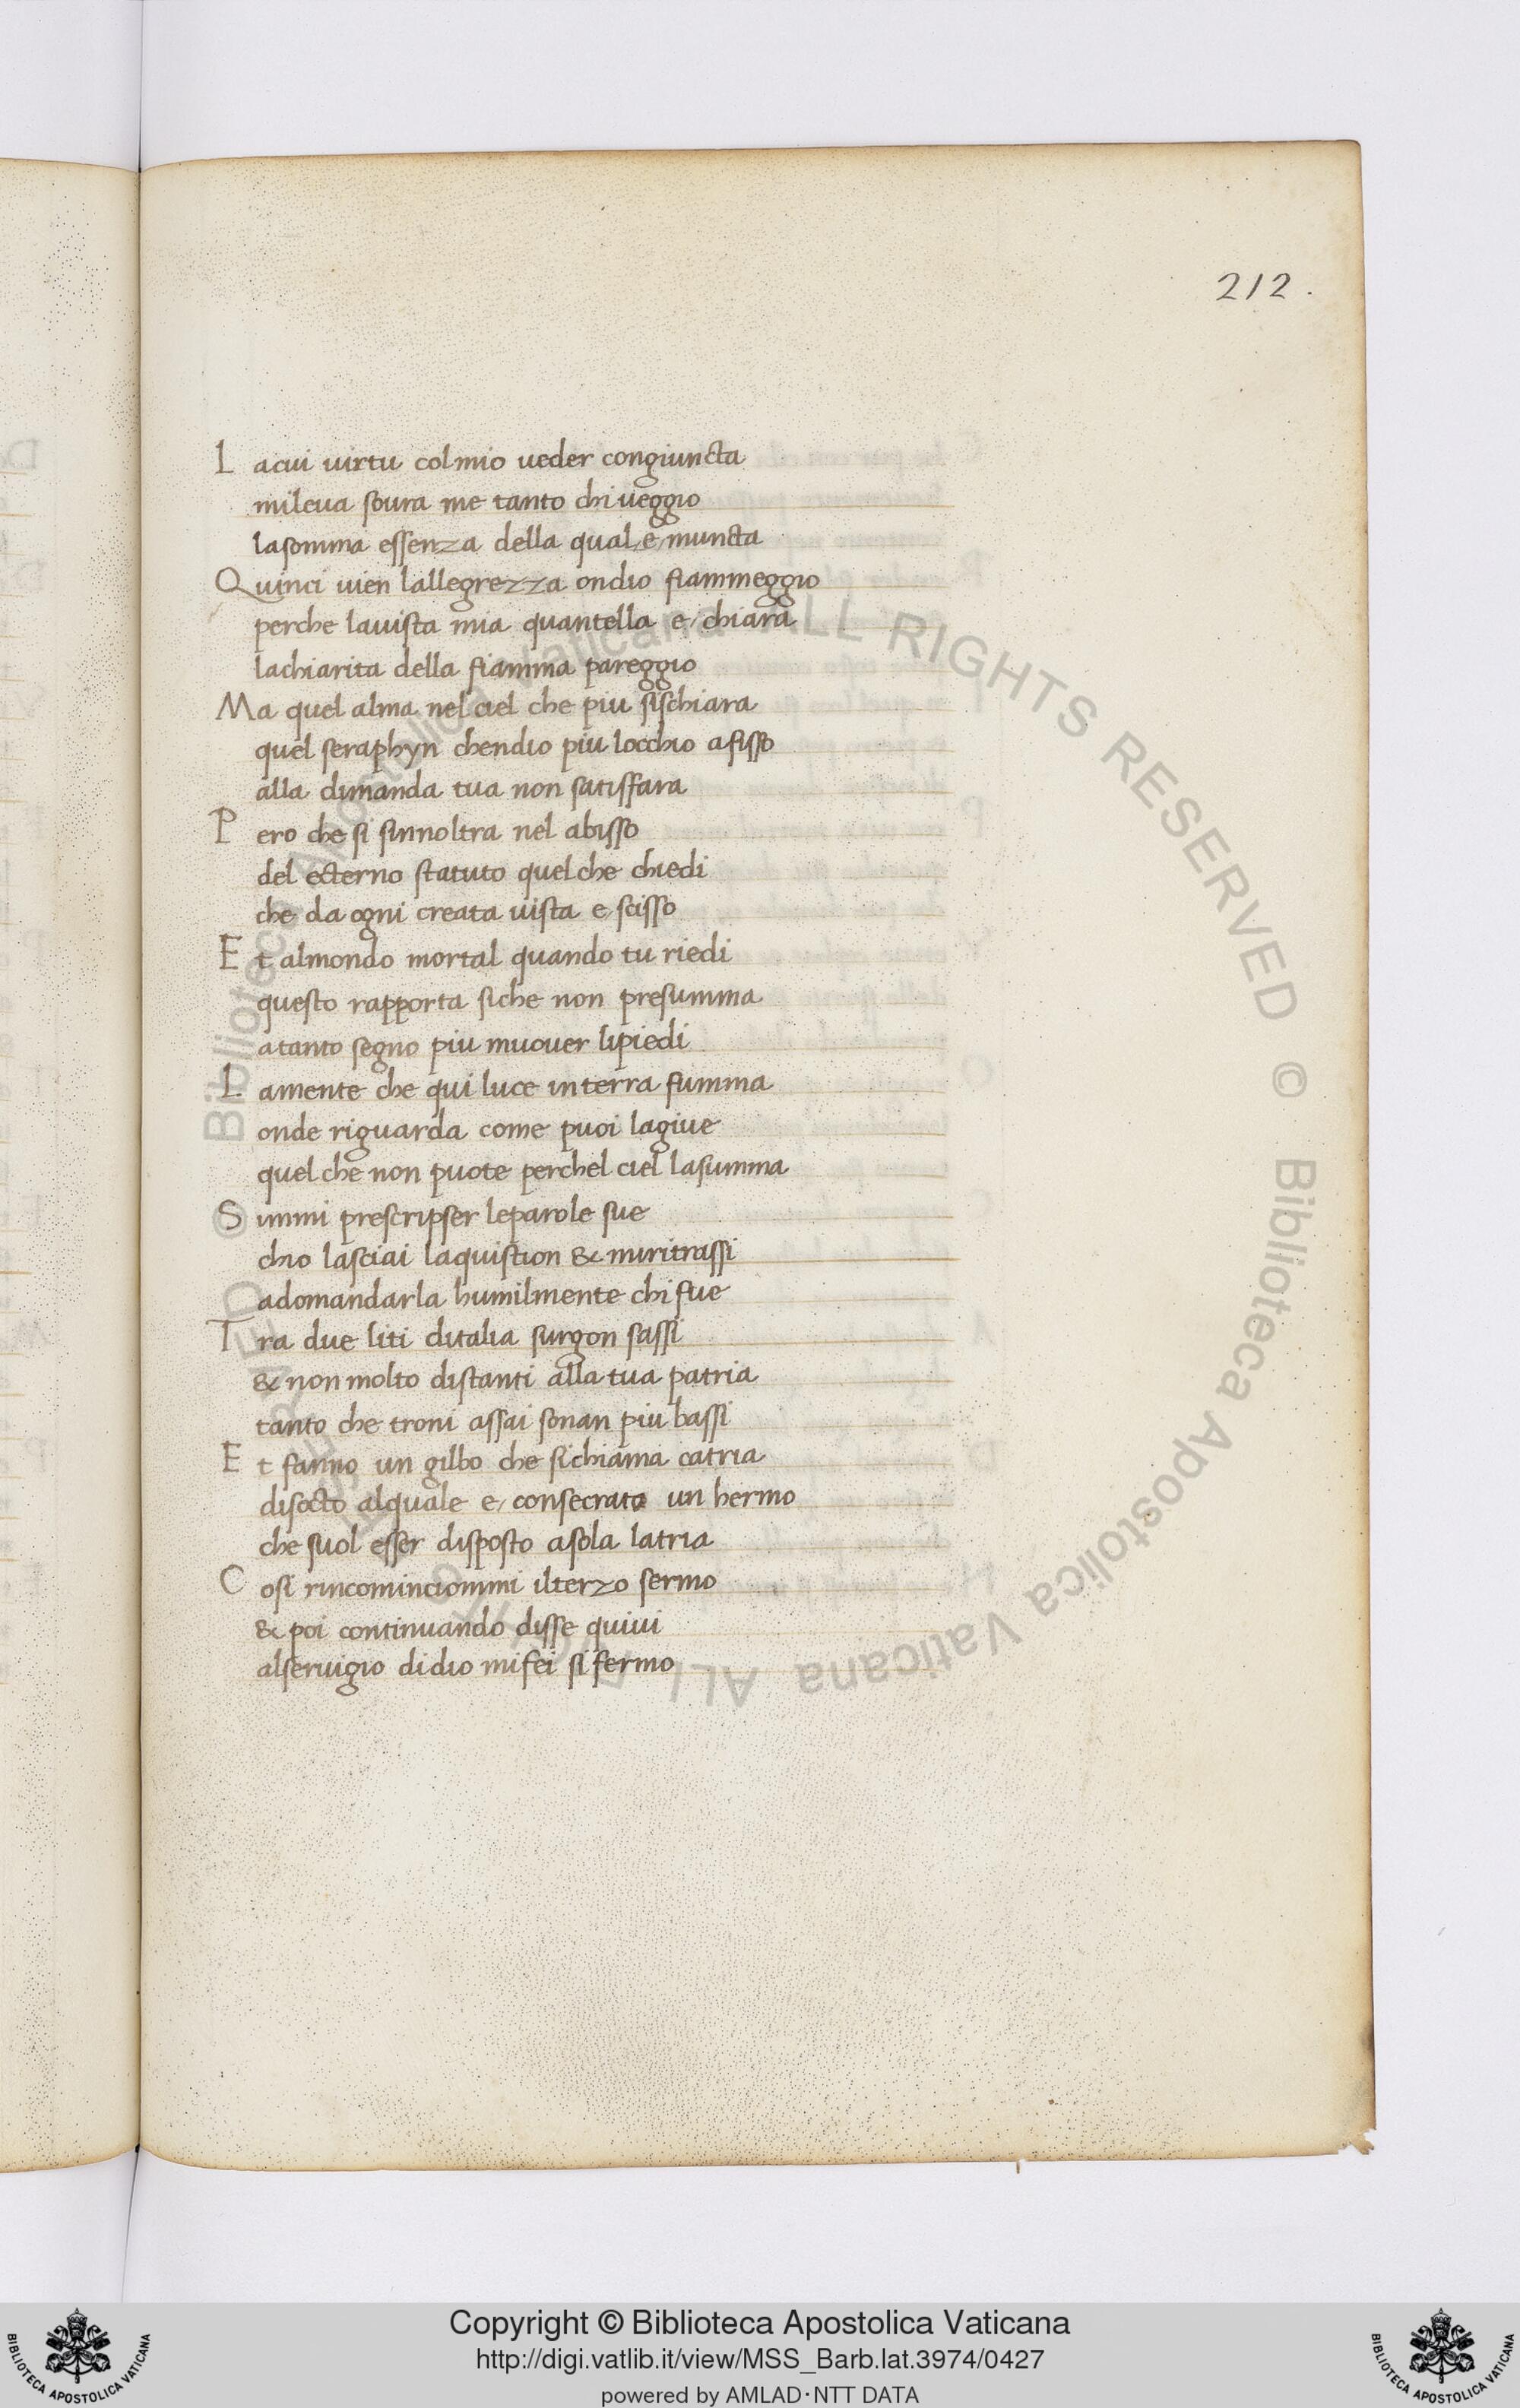 212.
L acui uirtu colmio ueder congiuncta
mileua soura me tanto chi ueggio
lasomma essenza della qual e muncta
Quinci uien lallegrezza ondio fiammeggio
perche lauista mia quantella e chiara
lachiarita della fiamma pareggio
Ma quel alma nel ciel che piu sischiara
quel seraphyn chendio piu locchio afisso
alla dimanda tua non satisfara
P ero che si sinnoltra nel abisso
del ecterno statuto quel che chiedi
che da ogni creata uista e scisso
E t almondo mortal quando tu riedi
questo rapporta siche non presumma
atanto segno piu muouer lipiedi
L amente che qui luce interra fumma
onde riguarda come puoi lagiue
quel che non puote perchel ciel lasumma
S immi prescripser leparole sue
chio lasciai laquistion & miritrassi
adomandarla humilmente chi fue
T ra due liti ditalia surgon sassi
& non molto distanti alla tua patria
tanto che troni assai sonan piu bassi
E t fanno un gilbo che sichiama catria
disocto alquale e consecrato un hermo
che suol esser disposto asola latria
C osi rincominciommi ilterzo sermo
& poi continuando disse quiui
alseruigio didio mifei si fermo
© Biblioteca Apostolica Vaticana ALL RIGHTS RESERVED © Biblioteca Apostolica Vaticana ALL RIGHTS RESERVED
Copyright © Biblioteca Apostolica Vaticana
http://digi.vatlib.it/view/MSS_Barb.lat.3974/0427
powered by AMLAD·NTT DATA
BIBLIOTECA APOSTOLICA VATICANA
BIBLIOTECA APOSTOLICA VATICANA